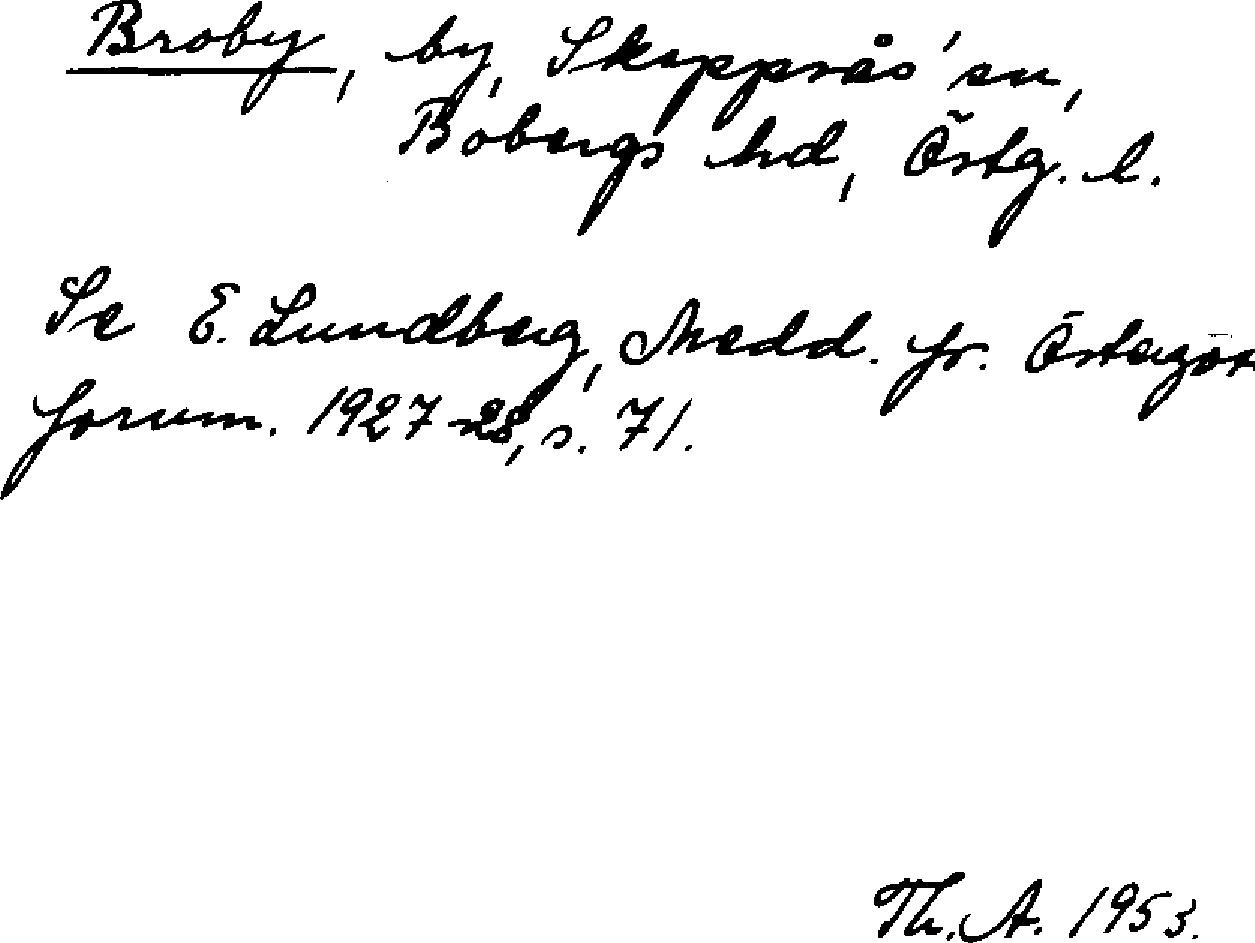 Broby, by, Skeppsås' sn,
Bobergs hd, Östg. l.
Se E. Lundberg, Medd. fr. Östergöt
fornm. 1927-28, s. 71.
Th. A. 1953.